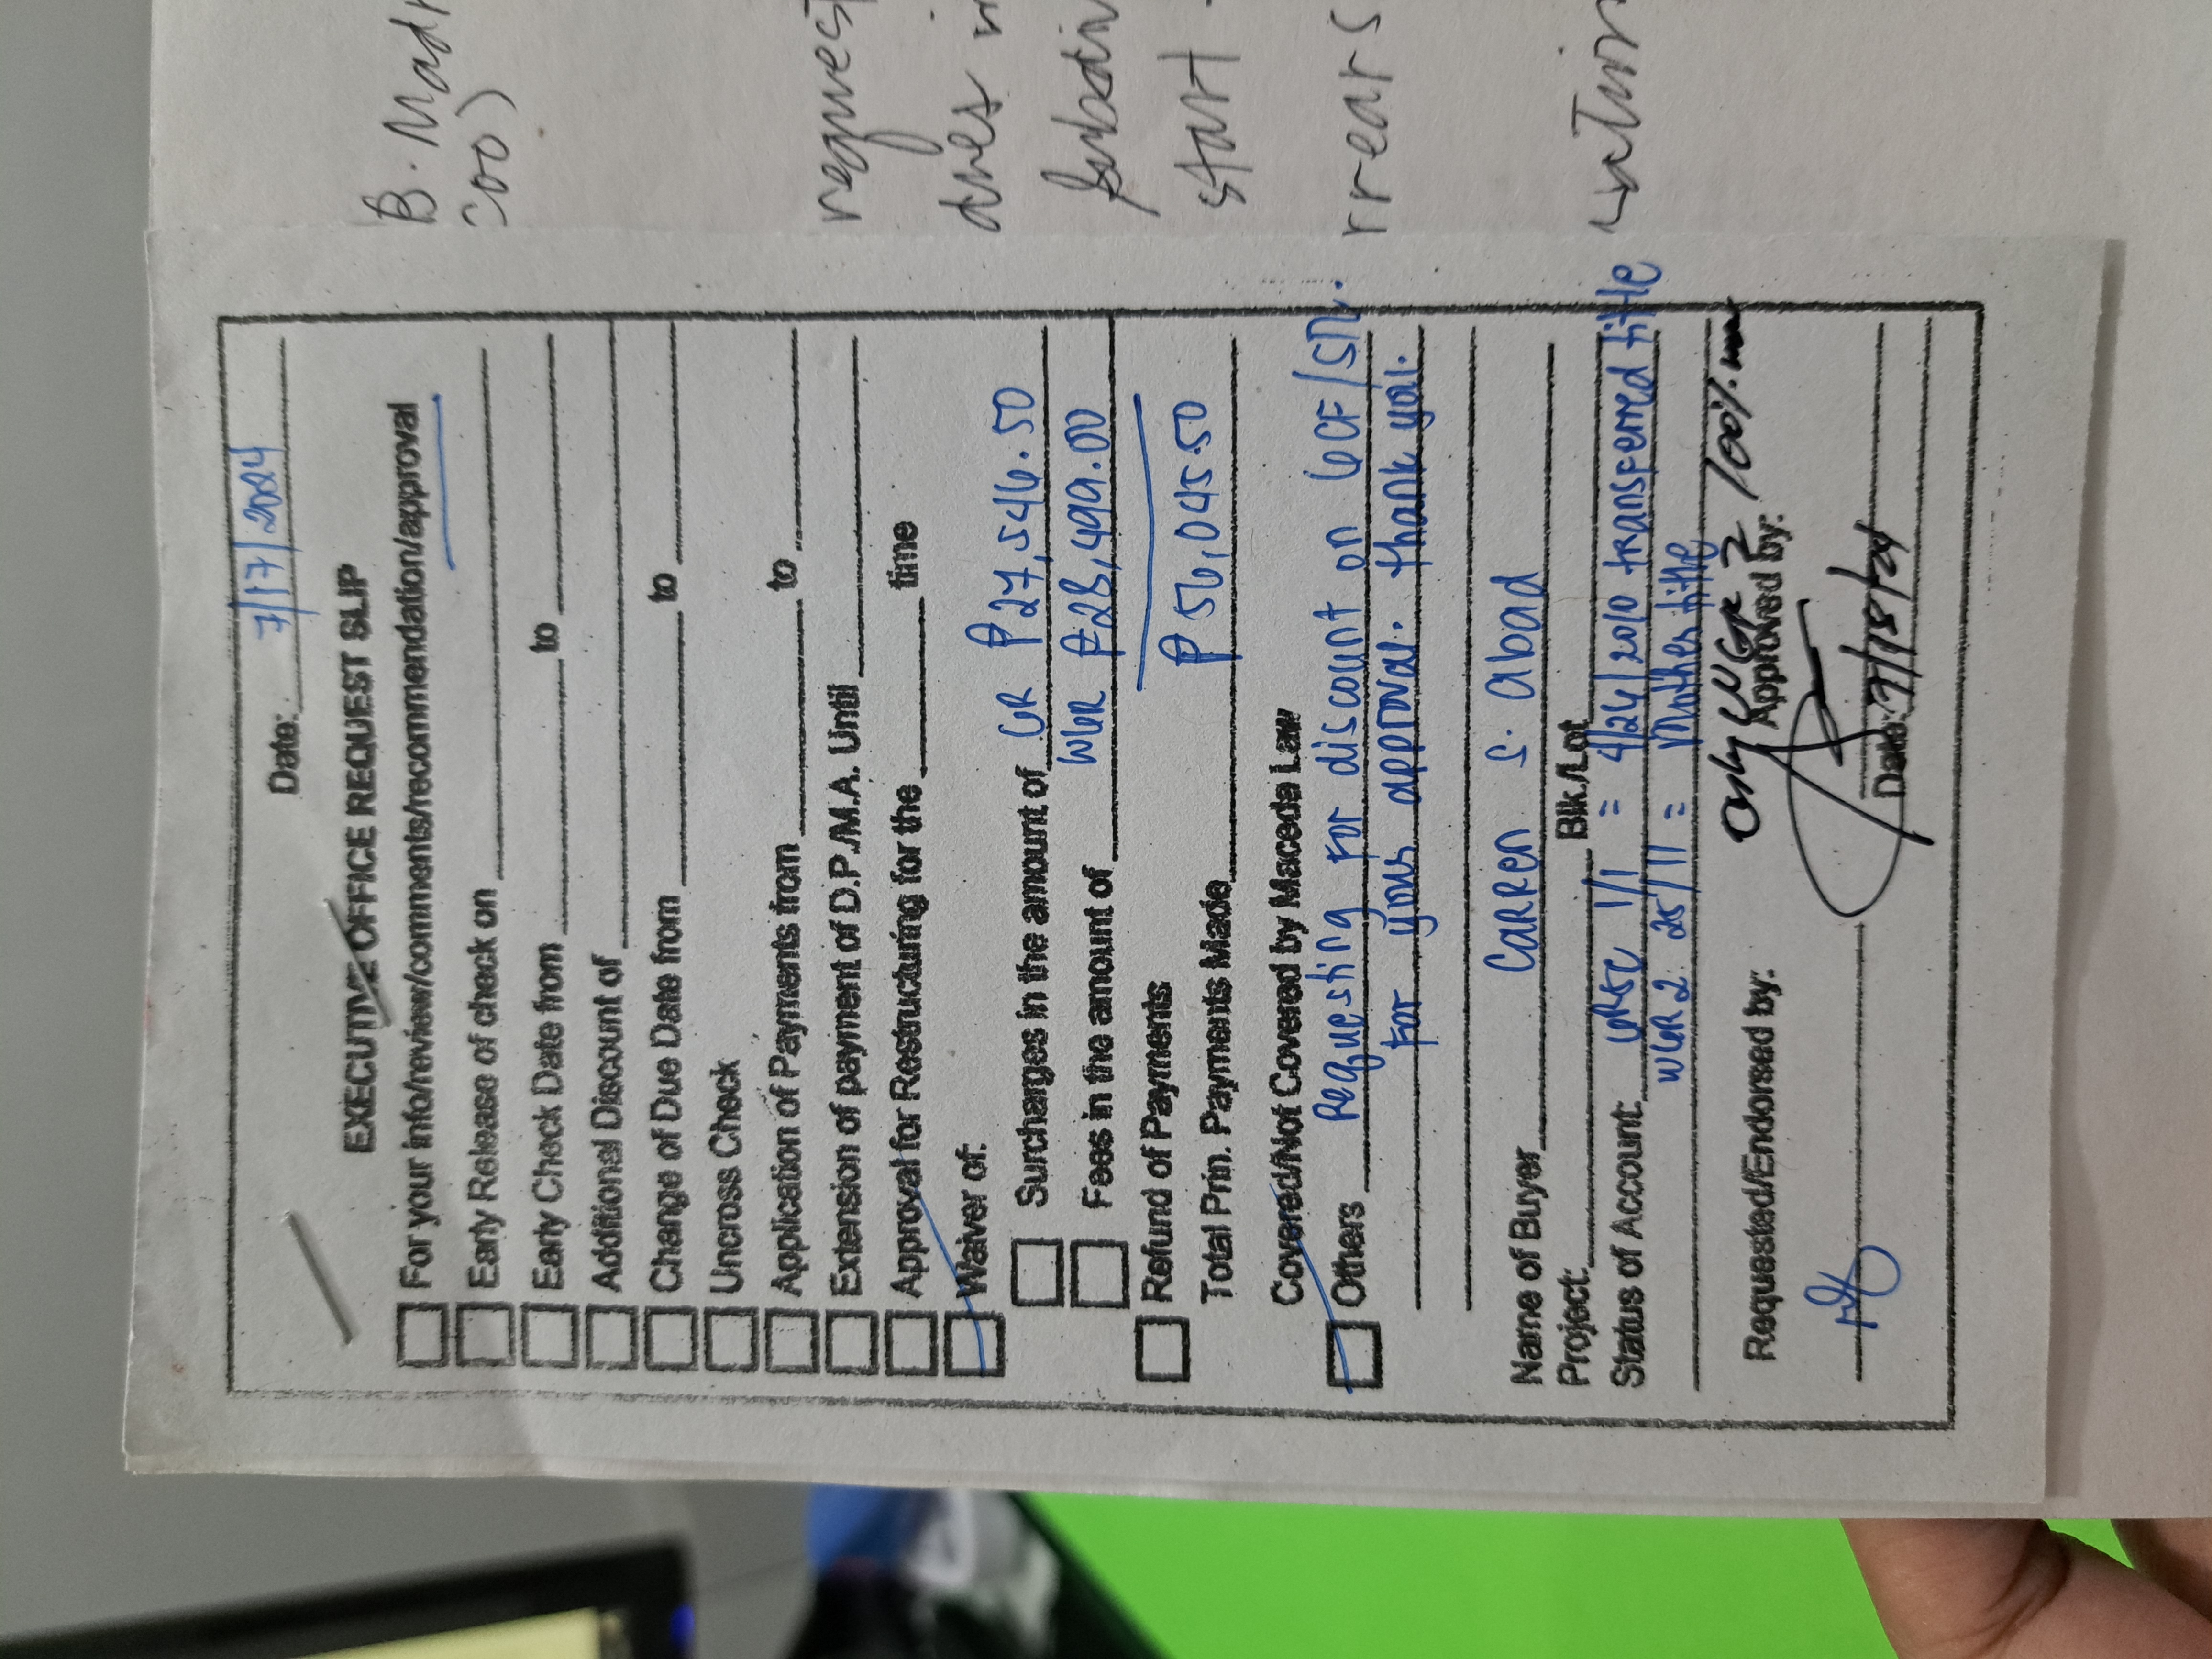 Date: 7/17/2024
EXECUTIVE OFFICE REQUEST SLIP
For your info/review/comments/recommendation/approval
Early Release of check on
Early Check Date from to
Additional Discount of
Change of Due Date from to
Uncross Check
Application of Payments from to
Extension of payment of D.P./M.A. Until
Approval for Restructuring for the time
Waiver of:
Surcharges in the amount of GR ₱27,546.50
Fees in the amount of WGR ₱28,499.00
Refund of Payments
Total Prin. Payments Made ₱56,045.50
Covered/Not Covered by Maceda Law
Others Requesting for discount on GCF/STL.
For your approval. Thank you.
Name of Buyer Carren S. Abad
Project: Blk./Lot
Status of Account: GRSC 1/1 = 4/26/2010 transferred title
WGR 2: 25/11 = Mother title
Only WGR 2 100%
Requested/Endorsed by: Approved by:
Date: 7/18/24
B. Madr
COO)
request
dues in
start
rrears